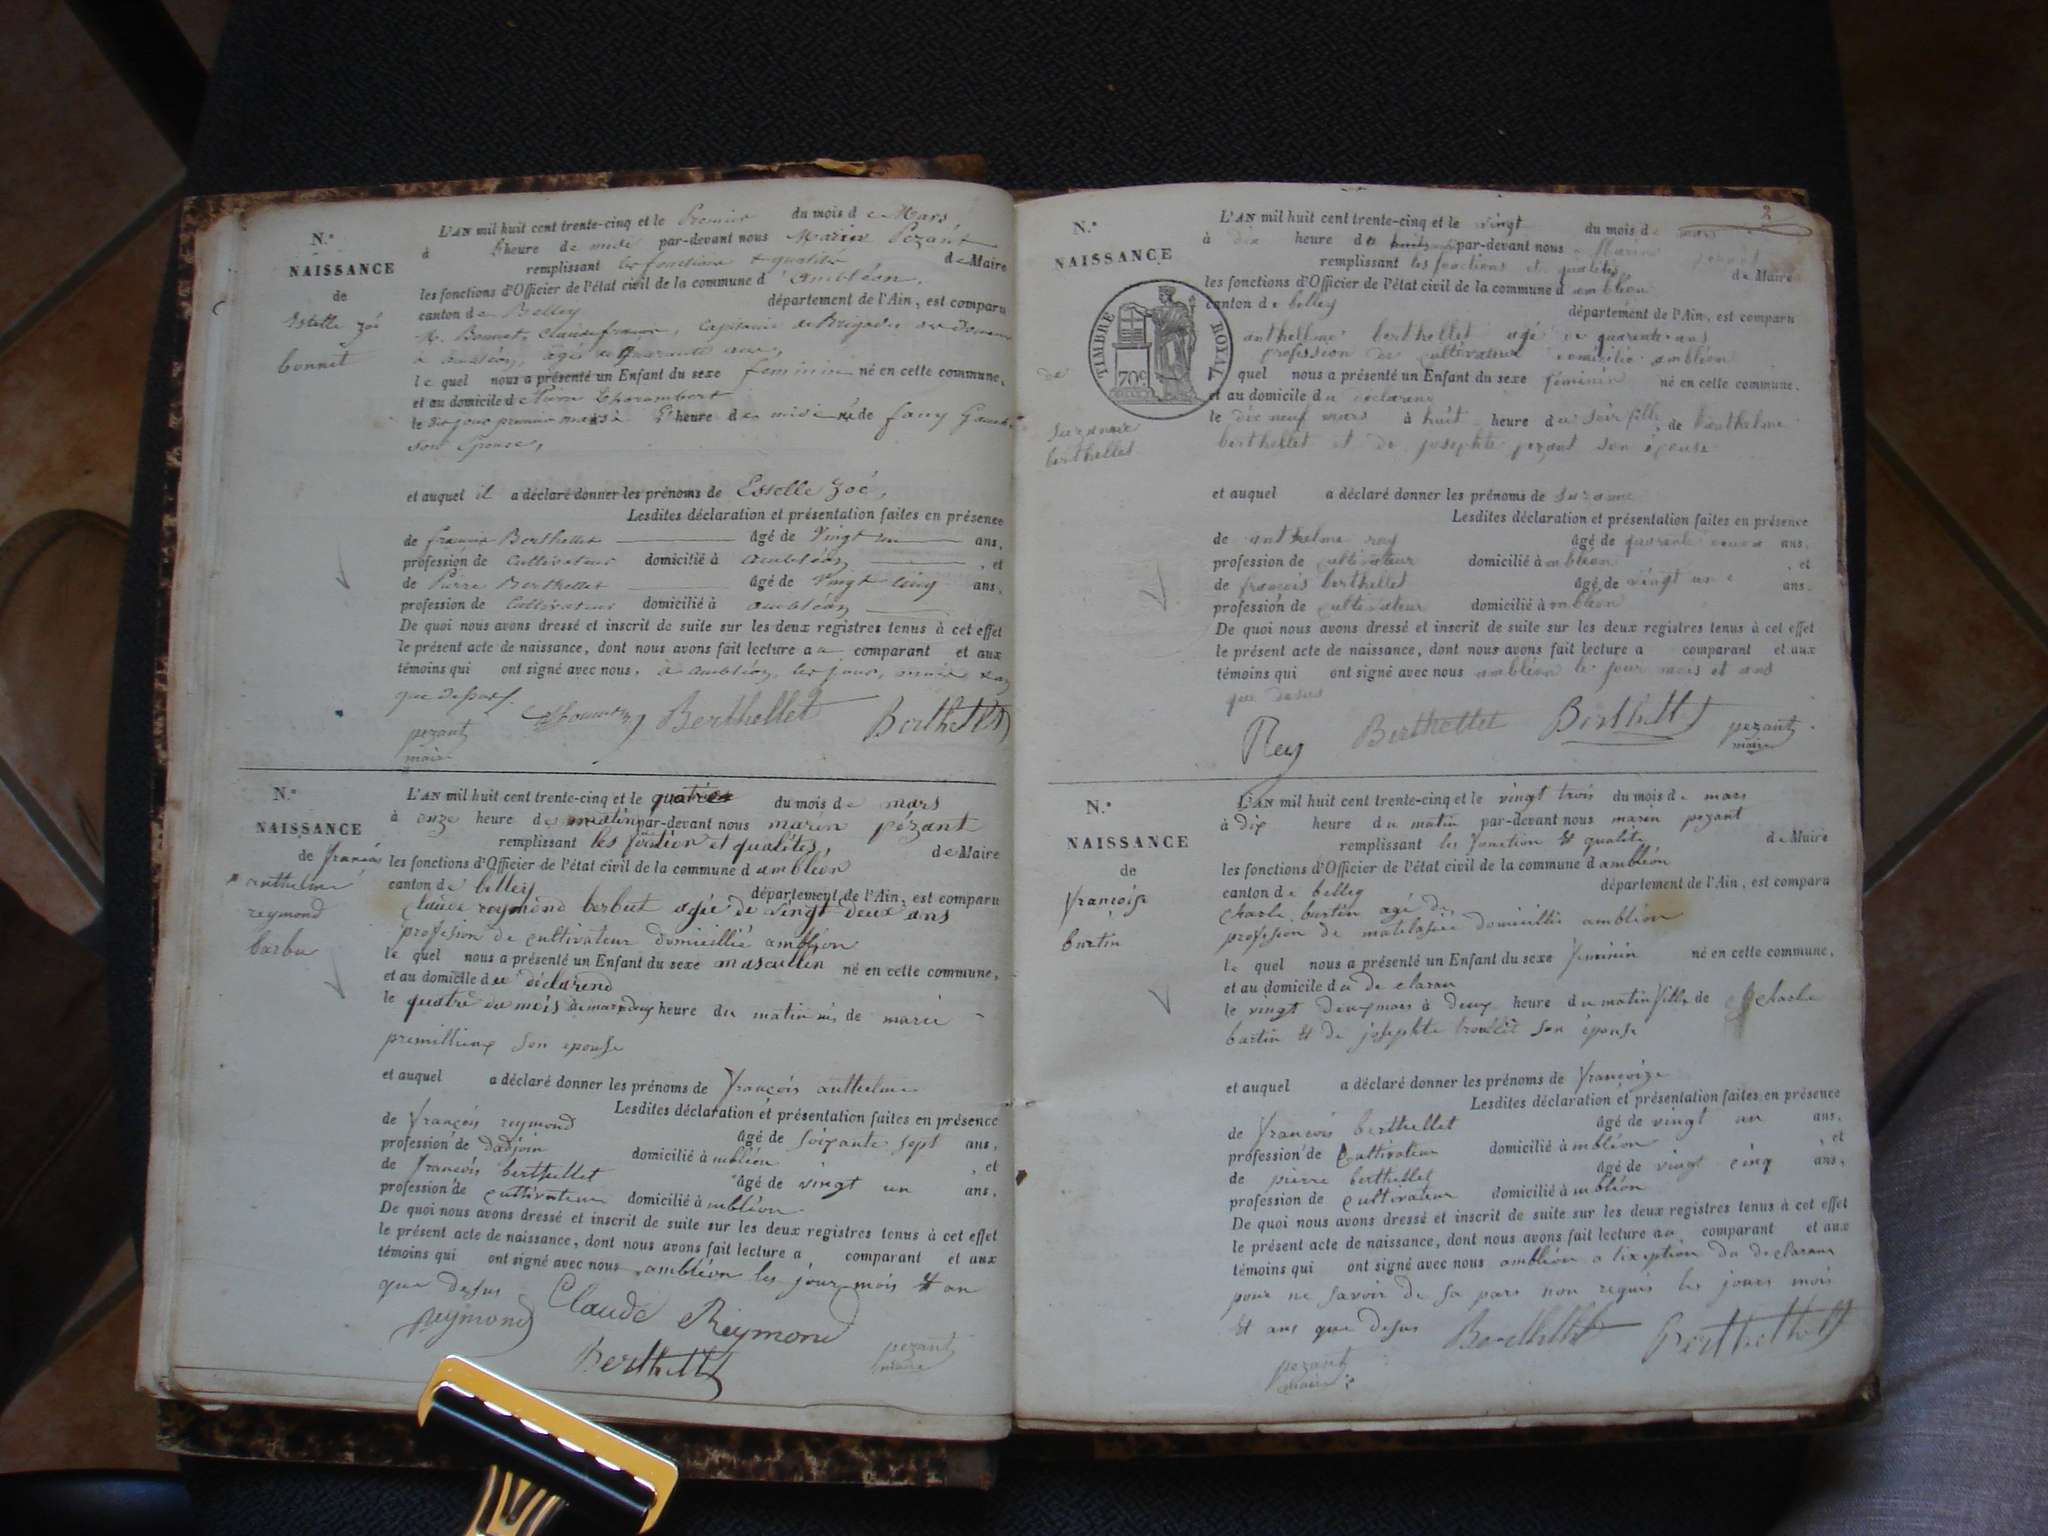 N.°
NAISSANCE
de
Estelle Zoé
bonnet
L'AN mil huit cent trente-cinq et le Premier du mois de Mars
à heure de midi par-devant nous Marin Pezant
remplissant les fonctions & qualités de Maire
les fonctions d'Officier de l'état civil de la commune d'Ambléon,
canton de Belley département de l'Ain, est comparu
M. Bonnet, Claude françois, Capitaine de Brigade des Douanes
à ambléon, agé de Quarante ans,
le quel nous a présenté un Enfant du sexe feminin né en cette commune,
et au domicile de
le dit jour premier mars à heure de midi né de fany
son Epouse,
et auquel il a déclaré donner les prénoms de Estelle Zoé,
Lesdites déclaration et présentation faites en présence
de francois Berthellet âgé de Vingt un ans,
profession de Cultivateur domicilié à ambléon, et
de Pierre Berthellet âgé de Vingt cinq ans,
profession de Cultivateur domicilié à ambléon
De quoi nous avons dressé et inscrit de suite sur les deux registres tenus à cet effet
le présent acte de naissance, dont nous avons fait lecture au comparant et aux
témoins qui ont signé avec nous, à ambléon, les jour, mois & an
que dessus.
Berthellet Berthellet
pezant
maire
N.°
NAISSANCE
de françois
anthelme
reymond
barbu
L'AN mil huit cent trente-cinq et le quatre du mois de mars
à onze heure de matin par-devant nous marin pézant
remplissant les fontion et qualités, de Maire
les fonctions d'Officier de l'état civil de la commune d ambléon
canton de belley département de l'Ain, est comparu
Claude reymond berbut agée de vingt deux ans
profesion de cultivateur domicillié ambléon
le quel nous a présenté un Enfant du sexe masculin né en cette commune,
et au domicile du déclarend
le quatre du mois de mars heure du matin nés de marie
premillieux son epouse
et auquel a déclaré donner les prénoms de françois anthelme
Lesdites déclaration et présentation faites en présence
de françois reymond âgé de soixante sept ans,
profession de dadjoin domicilié à mbléon, et
de françois berthellet âgé de vingt un ans,
profession de cultivateur domicilié à mbléon
De quoi nous avons dressé et inscrit de suite sur les deux registres tenus à cet effet
le présent acte de naissance, dont nous avons fait lecture a comparant et aux
témoins qui ont signé avec nous ambléon les jour mois et an
que desus Claude Reymond
Reymond
Berthellet pezant
maire
2
N.°
NAISSANCE
TIMBRE ROYAL
70c
de
Suzanne
berthellet
L'AN mil huit cent trente-cinq et le vingt du mois de mars
à dix heure du par-devant nous Marin pezant
remplissant les fonctions et qualités de Maire
les fonctions d'Officier de l'état civil de la commune d ambléon
canton de belley département de l'Ain, est comparu
anthellme berthellet agé de quarente ans
profession de cultivateur domicilié ambléon
quel nous a présenté un Enfant du sexe féminin né en cette commune,
et au domicile du declarent
le dix neuf mars à huit heure du soir fille de d'anthelme
berthellet et de josephte pezant son épouse
et auquel a déclaré donner les prénoms de Suzanne
Lesdites déclaration et présentation faites en présence
de anthelme rey âgé de quarente ans,
profession de cultivateur domicilié à mbléon, et
de françois berthellet âgé de vingt un ans,
profession de cultivateur domicilié à mbléon
De quoi nous avons dressé et inscrit de suite sur les deux registres tenus à cet effet
le présent acte de naissance, dont nous avons fait lecture a comparant et aux
témoins qui ont signé avec nous ambléon le jour mois et ans
que desus
Rey Berthellet Berthellet pezant
maire
N.°
NAISSANCE
de
françoise
burtin
L'AN mil huit cent trente-cinq et le vingt trois du mois de mars
à dix heure du matin par-devant nous marin pezant
remplissant les fonction et qualité de Maire
les fonctions d'Officier de l'état civil de la commune d ambléon
canton de belley département de l'Ain, est comparu
Charle burtin agé de
profesion de matelasier domicillié ambléon
le quel nous a présenté un Enfant du sexe feminin né en cette commune,
et au domicile du de claran
le vingt deux mars à deux heure du matin fille de Charle
burtin et de josephte son épouse
et auquel a déclaré donner les prénoms de françoize
Lesdites déclaration et présentation faites en présence
de françois berthellet âgé de vingt un ans,
profession de cultivateur domicilié à mbléon, et
de pierre berthellet âgé de vingt cinq ans,
profession de cultivateur domicilié à mbléon
De quoi nous avons dressé et inscrit de suite sur les deux registres tenus à cet effet
le présent acte de naissance, dont nous avons fait lecture au comparant et aux
témoins qui ont signé avec nous ambléon a l'exeption du declarant
pour ne savoir de sa pars non requis les jours mois
et ans que desus Berthellet Berthellet
pezant
maire